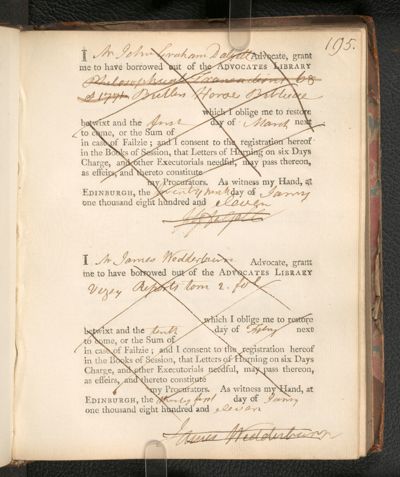 195.
I Mr John Graham Dalyell Advocate, grant
me to have borrowed out of the ADVOCATES LIBRARY
Philosophical Transactions 
of 1771 Butlers Horae Biblicae
which I oblige me to restore
betwixt and the first day of March next
to come, or the Sum of
in case of Failzie; and I consent to the registration hereof
in the Books of Session, that Letters of Horning on six Days
Charge, and other Executorials needful, may pass thereon,
as effeirs, and thereto constitute
my Procurators. As witness my Hand, at
EDINBURGH, the day of Janry
one thousand eight hundred and eleven
I Mr James Wedderburn Advocate, grant
me to have borrowed out of the ADVOCATES LIBRARY
Vezey Reports tom 2. fol
which I oblige me to restore
betwixt and the tenth day of Febry next
to come, or the Sum of
in case of Failzie; and I consent to the registration hereof
in the Books of Session, that Letters of Horning on six Days
Charge, and other Executorials needful, may pass thereon,
as effeirs, and thereto constitute
my Procurators. As witness my Hand, at
EDINBURGH, the thirty first day of Janry
one thousand eight hundred and eleven
James Wedderburn